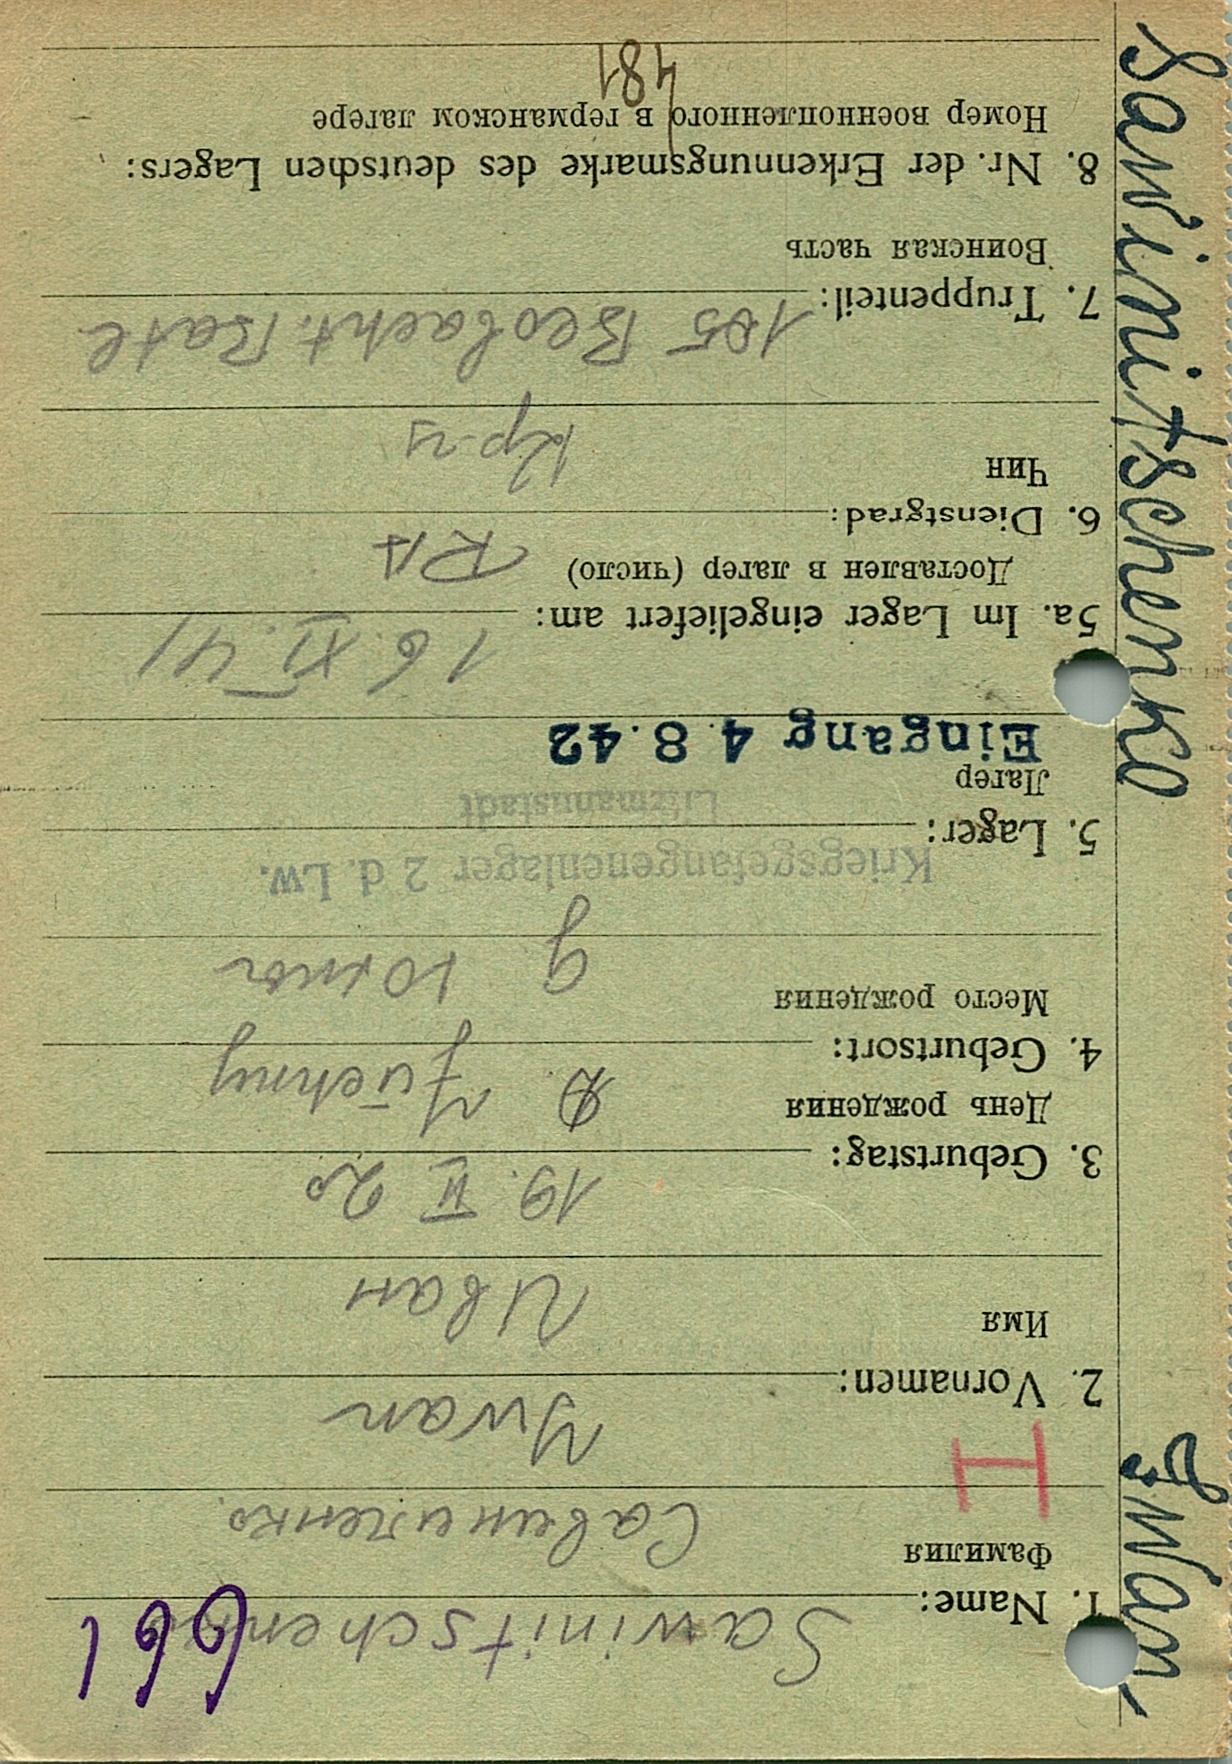 Sawinitschenko Iwan
661
1. Name: Sawinitschenko
Фамилия Савиниченко
2. Vornamen: Ywan
Имя Иван
3. Geburtstag: 19. II 20
День рождения
4. Geburtsort:
Место рождения
5. Lager: Kriegsgefangenenlager 2 d. Lw.
Litzmannstadt
Лагер
Eingang 4.8.42
5a. Im Lager eingeliefert am: 16. XI. 41
Доставлен в лагер (число)
6. Dienstgrad: RA
Чин Кр-ц
7. Truppenteil: 105 Beobacht. Batl
Воинская часть
8. Nr. der Erkennungsmarke des deutschen Lagers:
Номер военнопленного в германском лагере
481